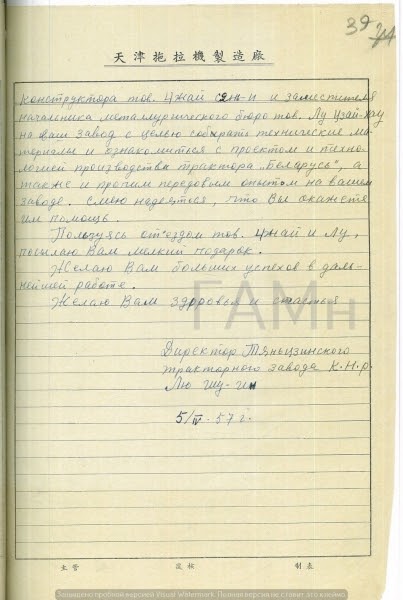 39
天津拖拉機製造廠
конструктора тов. Чжай Сян-и и заместителя
начальника металлургического бюро тов. Лу Цзай-хау
на ваш завод с целью собирать технические ма-
териалы и ознакомиться с проектом и техно-
логией производства трактора „Беларусь", а
также и прочим передовым опытом на вашем
заводе. Смею надеяться, что Вы окажете
им помощь.
Пользуясь от'ездом тов. Чжай и Лу,
посылаю Вам мелкий подарок.
Желаю Вам больших успехов в даль-
нейшей работе.
Желаю Вам здоровья и счастья
ГАМн
Директор Тяньцзинского
тракторного завода К.Н.Р.
Лю шу-
5/IV-57 г.
主管 覆核 製表
Защищено пробной версией Visual Watermark. Полная версия не ставит это клеймо.